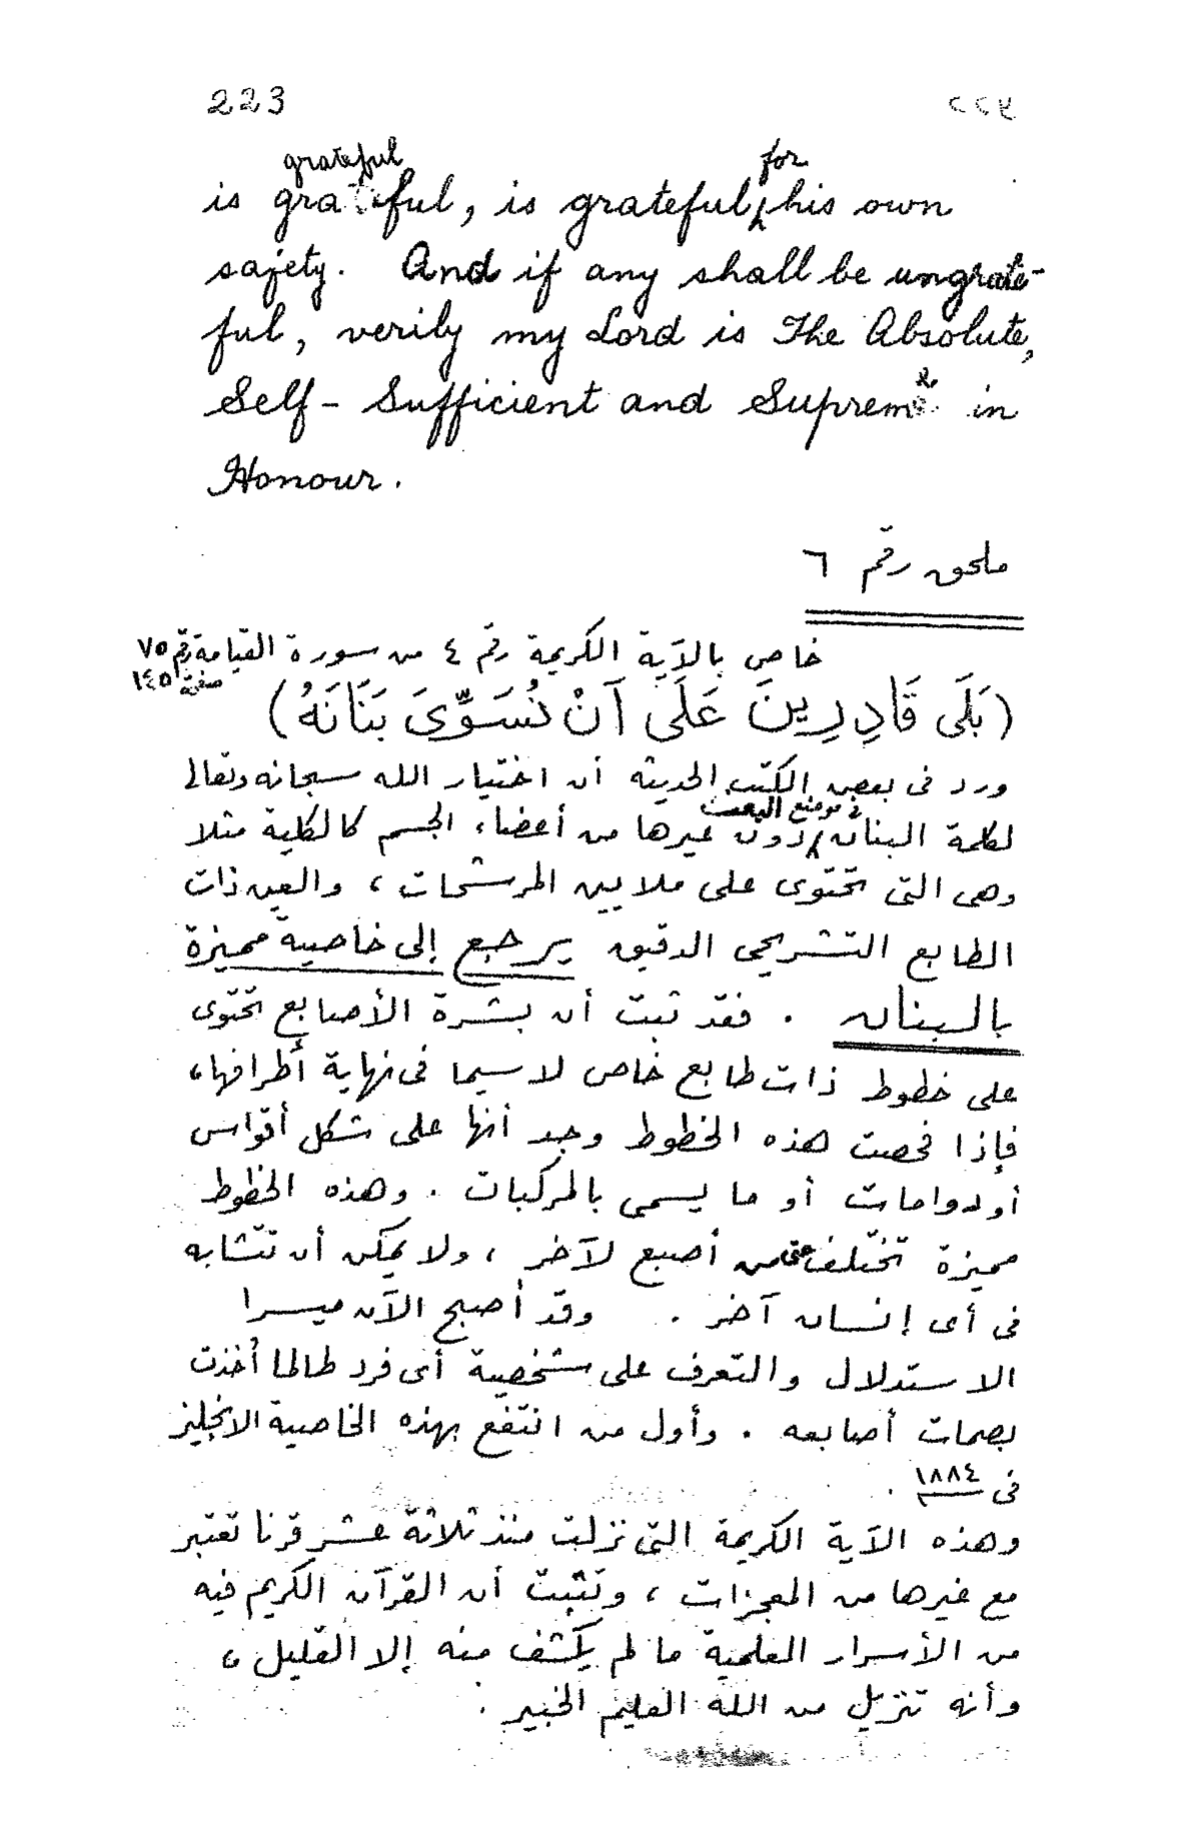 223 ٢٢٣
grateful for
is grateful, is grateful his own
safety. And if any shall be ungrate-
ful, verily my Lord is The Absolute,
Self-Sufficient and Supreme in
Honour.
ملحق رقم ٦
خاص بالآية الكريمة رقم ٤ من سورة القيامة رقم ٧٥
صفحة ١٤٥
(بَلَى قَادِرِينَ عَلَى آنْ نُسَوِّىَ بَنَانَهُ)
ورد فى بعض الكتب الحديثة أن اختيار الله سبحانه وتعالى
فى موضع البعث
لكلمة البنان دون غيرها من أعضاء الجسم كالكلية مثلا
وهى التى تحتوى على ملايين المرشحات ، والعين ذات
الطابع التشريحى الدقيق يرجع إلى خاصية مميزة
بالبنان . فقد ثبت أن بشرة الأصابع تحتوى
على خطوط ذات طابع خاص لاسيما فى نهاية أطرافها،
فإذا فحصت هذه الخطوط وجد أنها على شكل أقواس
أو دوامات أو ما يسمى بالمركبات . وهذه الخطوط
مميزة تختلف حتى من أصبع لآخر ، ولا يمكن أن تتشابه
فى أى إنسان آخر . وقد أصبح الآن ميسرا
الاستدلال والتعرف على شخصية أى فرد طالما أُخذت
بصمات أصابعه . وأول من انتفع بهذه الخاصية الانجليز
فى ١٨٨٤ .
وهذه الآية الكريمة التى نزلت منذ ثلاثة عشر قرنا تعتبر
مع غيرها من المعجزات ، وتثبت أن القرآن الكريم فيه
من الأسرار العلمية ما لم يكشف منه إلا القليل ،
وأنه تنزيل من الله العليم الخبير .